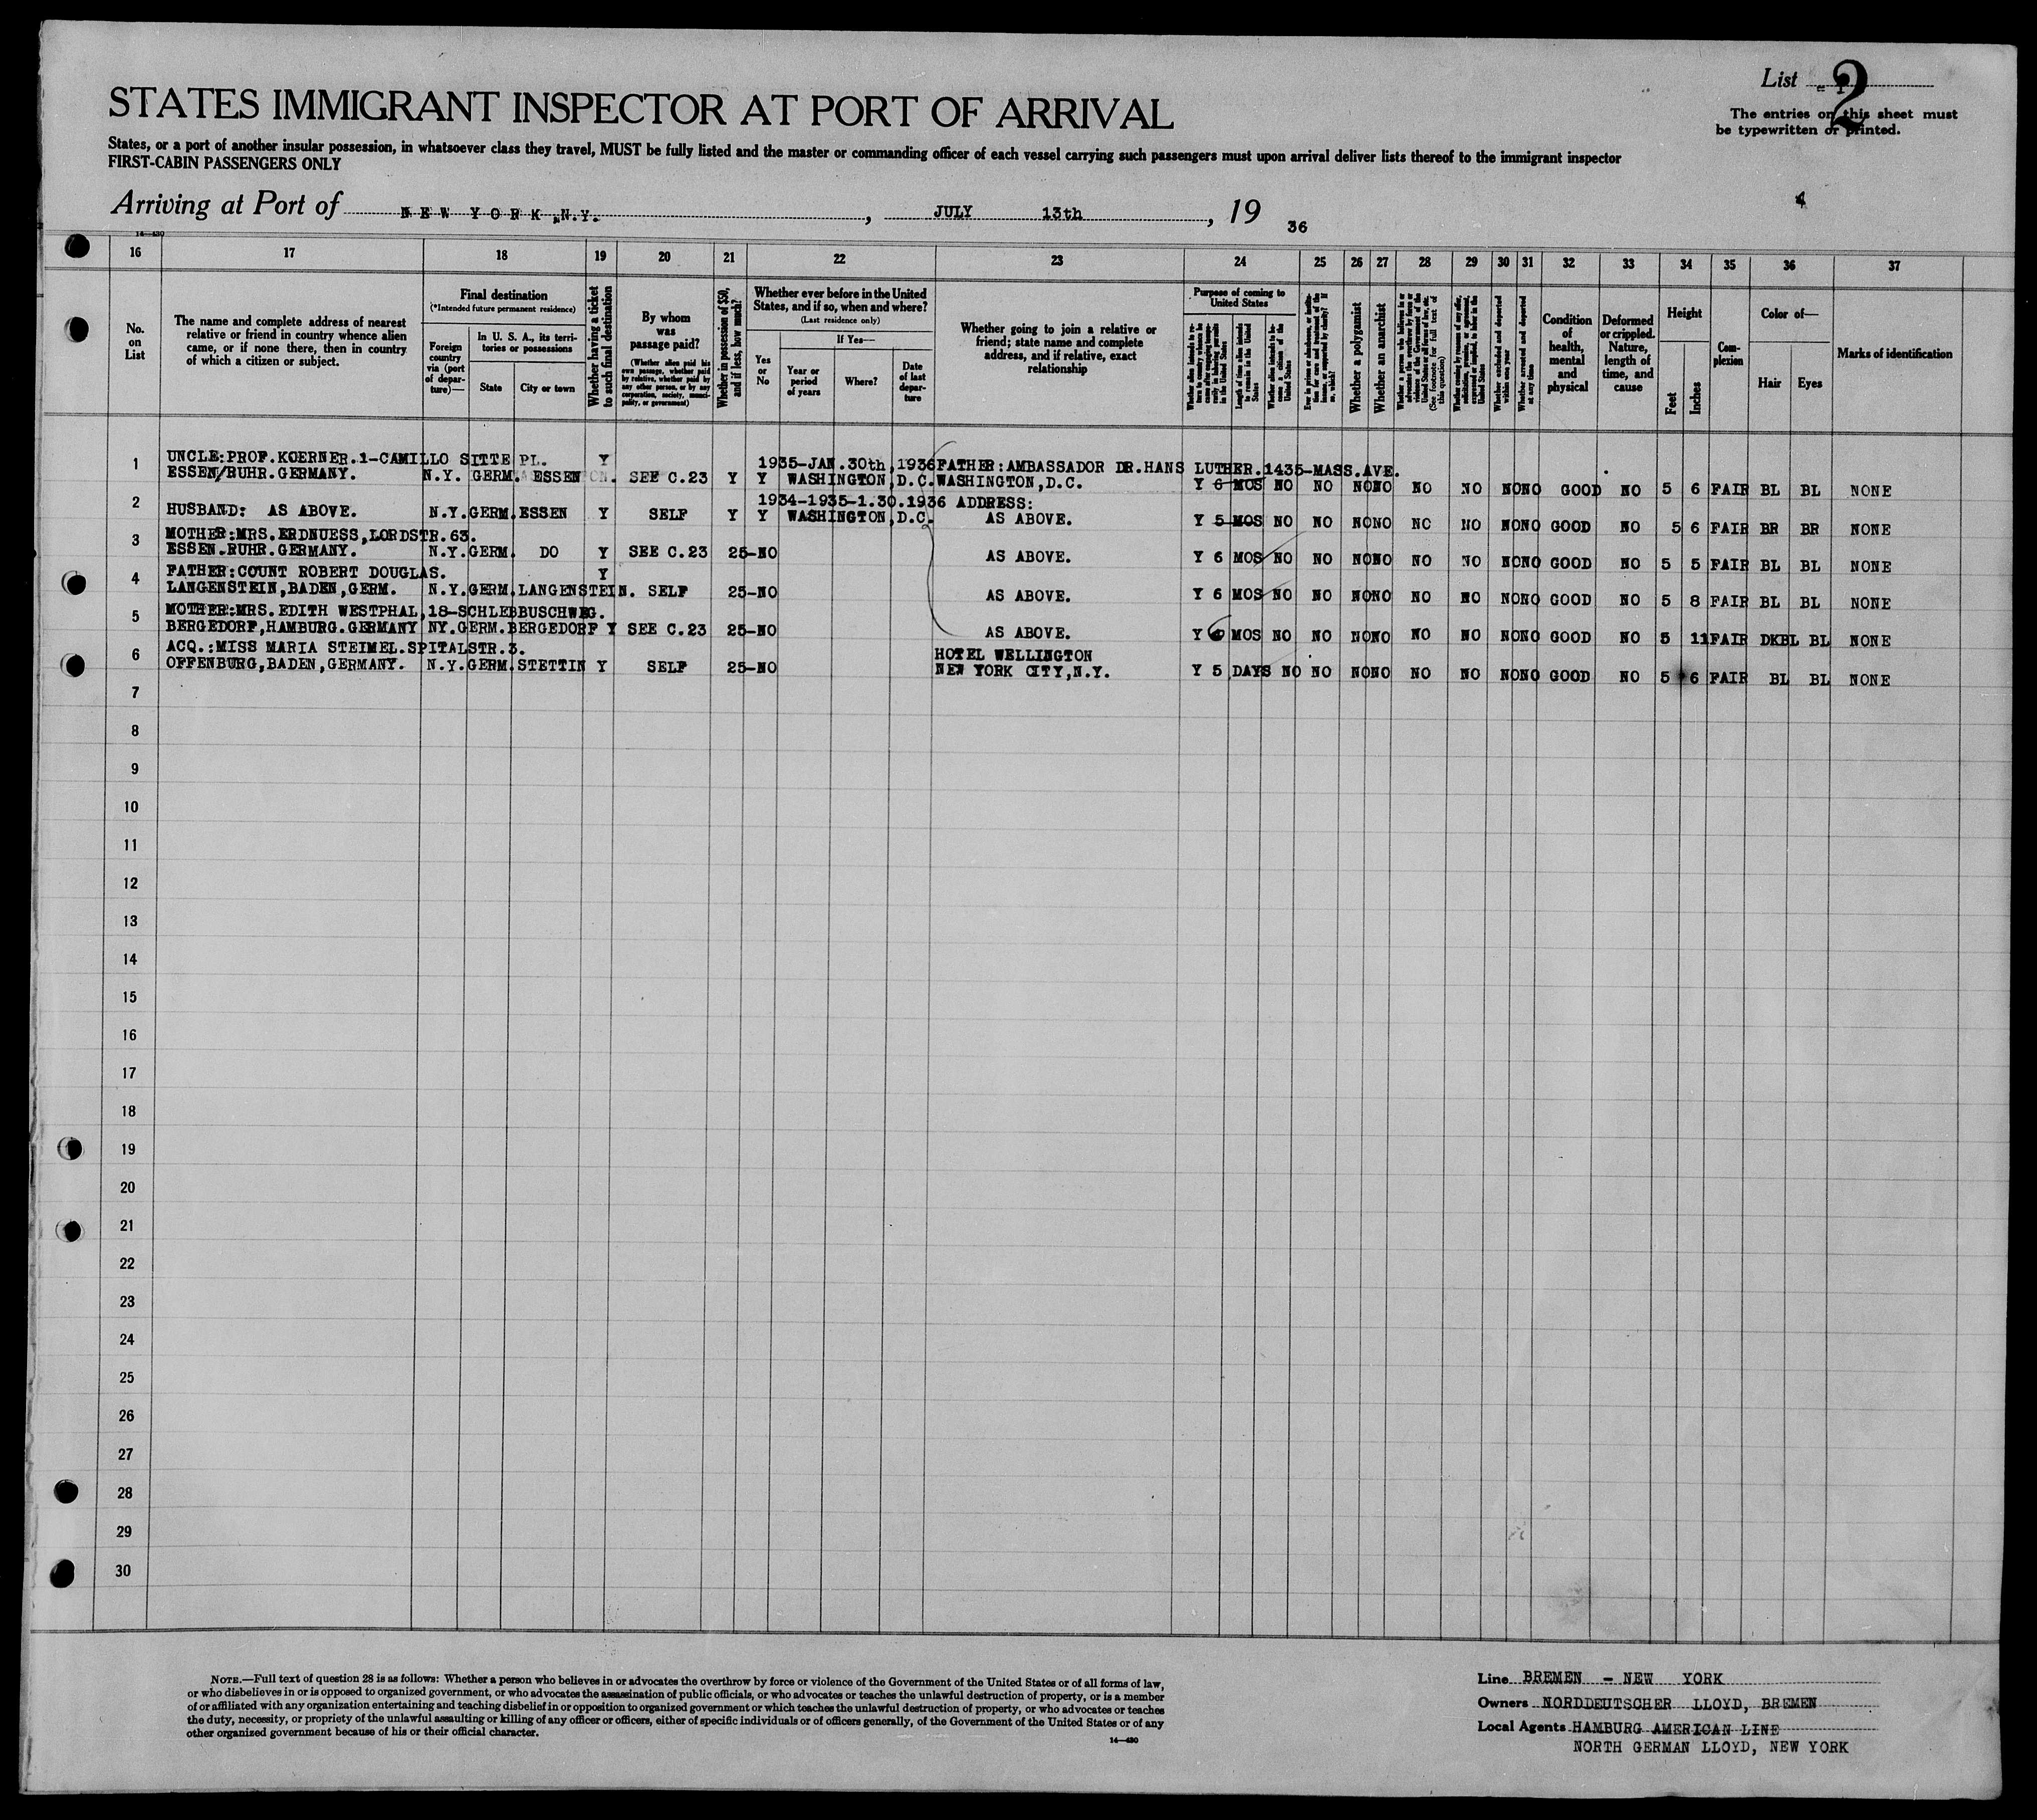 List 2
The entries on this sheet must
be typewritten or printed.
STATES IMMIGRANT INSPECTOR AT PORT OF ARRIVAL
States, or a port of another insular possession, in whatsoever class they travel, MUST be fully listed and the master or commanding officer of each vessel carrying such passengers must upon arrival deliver lists thereof to the immigrant inspector
FIRST-CABIN PASSENGERS ONLY
Arriving at Port of NEW YORK, N.Y. , JULY 13th , 19 36
4
14—430
16 17 18 19 20 21 22 23 24 25 26 27 28 29 30 31 32 33 34 35 36 37
No. on List
The name and complete address of nearest relative or friend in country whence alien came, or if none there, then in country of which a citizen or subject.
Final destination
(*Intended future permanent residence)
Foreign country via (port of departure)—
In U. S. A., its territories or possessions
State
City or town
Whether having a ticket to such final destination
By whom was passage paid?
(Whether alien paid his own passage, whether paid by relative, whether paid by any other person, or by any corporation, society, municipality, or government)
Whether in possession of $50, and if less, how much?
Whether ever before in the United States, and if so, when and where?
(Last residence only)
Yes or No
If Yes—
Year or period of years
Where?
Date of last departure
Whether going to join a relative or friend; state name and complete address, and if relative, exact relationship
Purpose of coming to United States
Length of time alien intends to remain in the United States
Whether alien intends to become a citizen of the United States
Whether a polygamist
Whether an anarchist
(See footnote for full text of this question)
Whether excluded and deported within one year
Whether arrested and deported at any time
Condition of health, mental and physical
Deformed or crippled. Nature, length of time, and cause
Height
Feet
Inches
Complexion
Color of—
Hair
Eyes
Marks of identification
1 UNCLE:PROF.KOERNER.1-CAMILLO SITTE PL. Y 1935-JAN.30th,1936 FATHER:AMBASSADOR DR.HANS LUTHER.1435-MASS.AVE.
ESSEN/RUHR.GERMANY. N.Y. GERM. ESSEN SEE C.23 Y Y WASHINGTON,D.C. WASHINGTON,D.C. Y 6 MOS NO NO NO NO NO NO NO NO GOOD NO 5 6 FAIR BL BL NONE
2 1934-1935-1.30.1936 ADDRESS:
HUSBAND: AS ABOVE. N.Y.GERM.ESSEN Y SELF Y Y WASHINGTON,D.C. AS ABOVE. Y 5 MOS NO NO NO NO NO NO NO NO GOOD NO 5 6 FAIR BR BR NONE
3 MOTHER:MRS.ERDNUESS,LORDSTR.63.
ESSEN-RUHR.GERMANY. N.Y.GERM. DO Y SEE C.23 25-NO AS ABOVE. Y 6 MOS NO NO NO NO NO NO NO NO GOOD NO 5 5 FAIR BL BL NONE
4 FATHER:COUNT ROBERT DOUGLAS. Y
LANGENSTEIN,BADEN,GERM. N.Y.GERM.LANGENSTEIN. SELF 25-NO AS ABOVE. Y 6 MOS NO NO NO NO NO NO NO NO GOOD NO 5 8 FAIR BL BL NONE
5 MOTHER:MRS. EDITH WESTPHAL,18-SCHLEBBUSCHWEG.
BERGEDORF,HAMBURG.GERMANY NY.GERM.BERGEDORF Y SEE C.23 25-NO AS ABOVE. Y 6 MOS NO NO NO NO NO NO NO NO GOOD NO 5 11 FAIR DKBL BL NONE
6 ACQ.:MISS MARIA STEIMEL.SPITALSTR.3. HOTEL WELLINGTON
OFFENBURG,BADEN,GERMANY. N.Y.GERM.STETTIN Y SELF 25-NO NEW YORK CITY,N.Y. Y 5 DAYS NO NO NO NO NO NO NO NO GOOD NO 5 6 FAIR BL BL NONE
7
8
9
10
11
12
13
14
15
16
17
18
19
20
21
22
23
24
25
26
27
28
29
30
NOTE.—Full text of question 28 is as follows: Whether a person who believes in or advocates the overthrow by force or violence of the Government of the United States or of all forms of law,
or who disbelieves in or is opposed to organized government, or who advocates the assassination of public officials, or who advocates or teaches the unlawful destruction of property, or is a member
of or affiliated with any organization entertaining and teaching disbelief in or opposition to organized government or which teaches the unlawful destruction of property, or who advocates or teaches
the duty, necessity, or propriety of the unlawful assaulting or killing of any officer or officers, either of specific individuals or of officers generally, of the Government of the United States or of any
other organized government because of his or their official character.
14—430
Line BREMEN - NEW YORK
Owners NORDDEUTSCHER LLOYD, BREMEN
Local Agents HAMBURG AMERICAN LINE
NORTH GERMAN LLOYD, NEW YORK